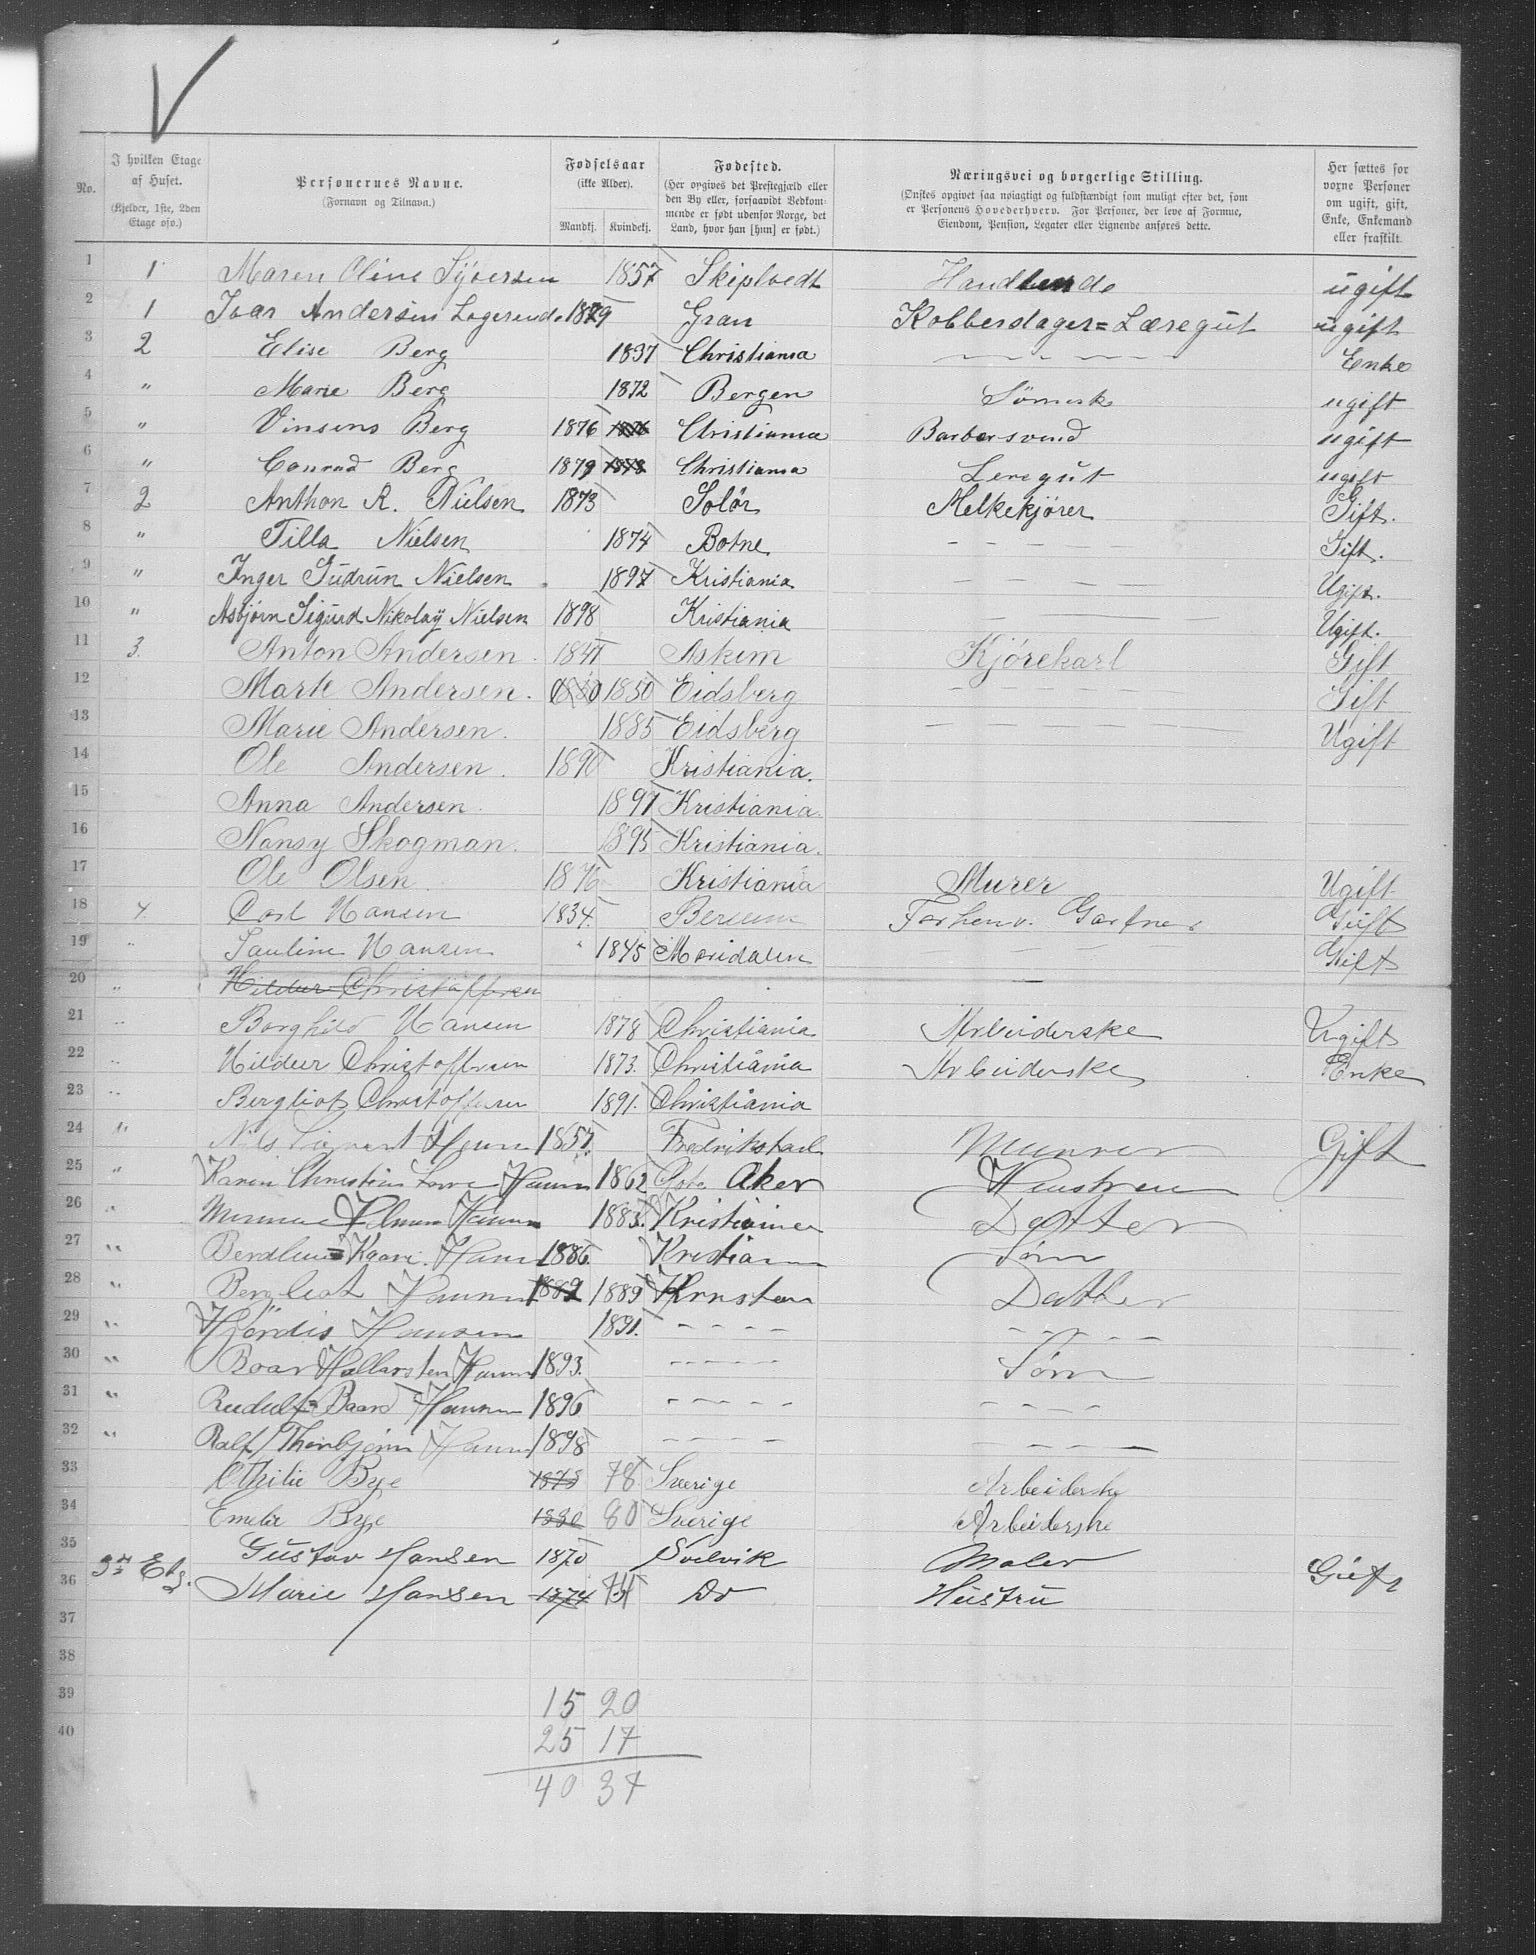 No. I hvilken Etage af Huset. (Kjelder, 1ste, 2den Etage osv.) Personernes Navne. (Fornavn og Tilnavn.) Fødselsaar (ikke Alder). Mandkj. Kvindekj. Fødested. (Her opgives det Prestegjæld eller den By eller, forsaavidt Vedkommende er født udenfor Norge, det Land, hvor han [hun] er født.) Næringsvei og borgerlige Stilling. (Ønskes opgivet saa nøiagtigt og fuldstændigt som muligt efter det, som er Personens Hovederhverv. For Personer, der leve af Formue, Eiendom, Pension, Legater eller Lignende anføres dette. Her sættes for voxne Personer om ugift, gift, Enke, Enkemand eller fraskilt.
1 1 Maren Oline Syversen 1857 Skiptvedt Handlende ugift
2 1 Ivar Andersen 1879 Gran Kobberslager=Læregut ugift
3 2 Elise Berg 1837 Christiania - - - - Enke
4 " Marie Berg 1872 Bergen Sömersk ugift
5 " Vinsens Berg 1876 1876 Christiania Barbersvend ugift
6 " Conrad Berg 1879 Christiania Leregut ugift
7 2 Anthon R. Nielsen 1873 Solör Melkekjører Gift.
8 " Tilla Nielsen 1874 Botne - - - - - Gift.
9 " Inger Gudrun Nielsen 1897 Kristiania - - - - - Ugift.
10 " Asbjørn Sigurd Nikolay Nielsen 1898 Kristiania - - - Ugift.
11 3. Anton Andersen. 1847 Askim Kjörekarl Gift
12 Marte Andersen. 1850 Eidsberg - - - - - Gift
13 Marie Andersen. 1885 Eidsberg - - - - Ugift
14 Ole Andersen. 1890 Kristiania.
15 Anna Andersen. 1891 Kristiania.
16 Nansy Skogman. 1895 Kristiania.
17 Ole Olsen. 1876 Kristiania Murer Ugift
18 4. Carl Hansen 1834. Berum Forhenv. Gartner Gift
19 " Pauline Hansen 1845 Maridalen Gift
20 " Hildur Christoffersen
21 " Borghild Hansen 1878 Christiania Arbeiderske Ugift
22 " Hildur Christoffersen 1873. Christiania Arbeiderske Enke
23 " Bergliot Christoffersen 1891. Christiania
24 " Nils 1857. Fredrikstad Murer Gift
25 " Karen Christine 1862 Aker Hustru
26 " 1883. Kristiania Datter
27 " Hansen 1886. Kristiania Søn
28 " Bergliot Hansen 1889 1889 Datter
29 " Hjördis Hansen 1891. - - - - - - - - -
30 " Roar Hallarsten Hansen 1893. - - - - - Søn
31 " Rudolf Baard Hansen 1896 - - - - - - - -
32 " Ralf Thorbjørn Hansen 1898 - - - - - - - - -
33 Othilie Bye 1878 78 Sverige Arbeiderske
34 Emelie Bye 1880 80 Sverige Arbeiderske
35 3die Etg. Gustav Hansen 1870 Svelvik Maler Gift
36 Marie Hansen 1874 74 Do Hustru
37
38
39 15 20
40 25 17
40 37